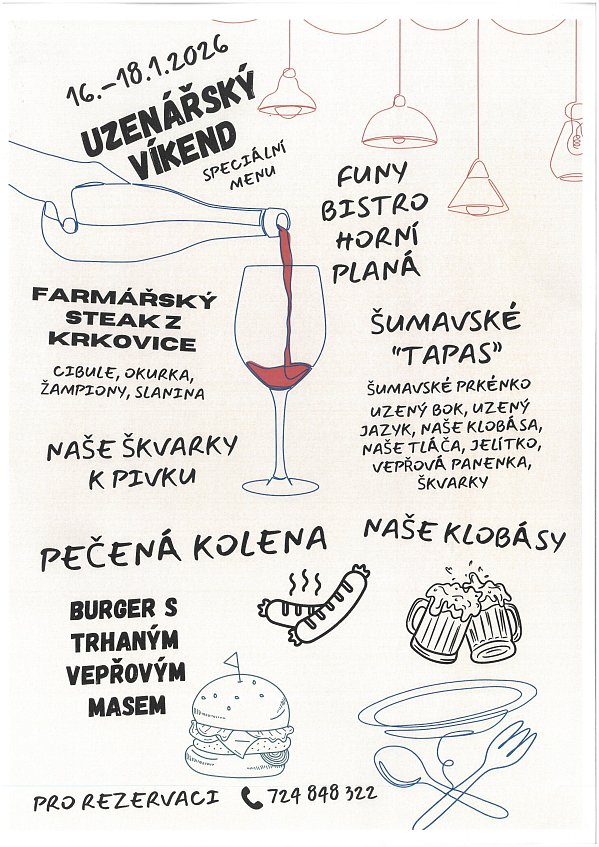 16.–18.1.2026
UZENÁŘSKÝ
VÍKEND
SPECIÁLNÍ
MENU
FUNY
BISTRO
HORNÍ
PLANÁ
FARMÁŘSKÝ
STEAK Z
KRKOVICE
CIBULE, OKURKA,
ŽAMPIONY, SLANINA
ŠUMAVSKÉ
"TAPAS"
ŠUMAVSKÉ PRKÉNKO
UZENÝ BOK, UZENÝ
JAZYK, NAŠE KLOBÁSA,
NAŠE TLÁČA, JELÍTKO,
VEPŘOVÁ PANENKA,
ŠKVARKY
NAŠE ŠKVARKY
K PIVKU
PEČENÁ KOLENA
NAŠE KLOBÁSY
BURGER S
TRHANÝM
VEPŘOVÝM
MASEM
PRO REZERVACI 724 848 322